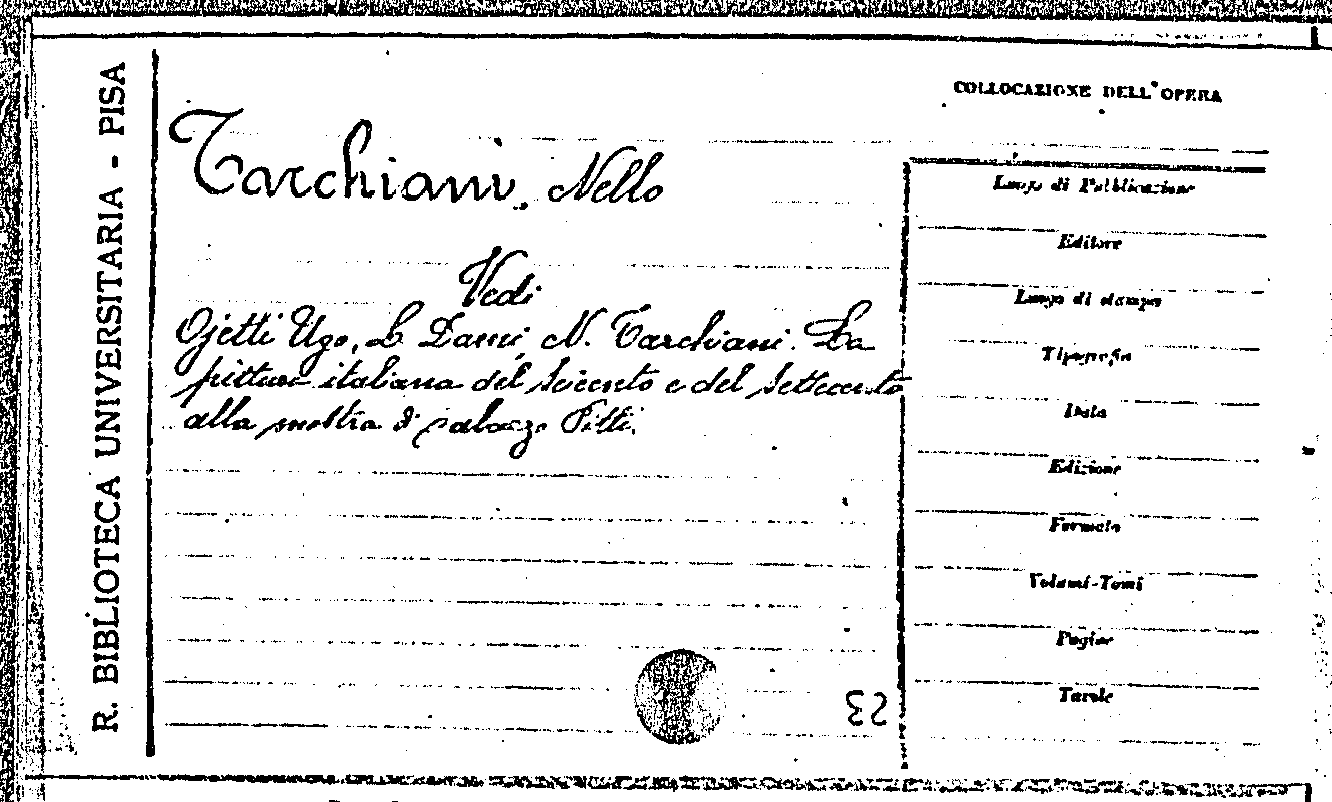 R. BIBLIOTECA UNIVERSITARIA - PISA
COLLOCAZIONE DELL'OPERA
Tarchiani, Nello
Vedi
Ojetti Ugo, L. Dami, N. Tarchiani. La
pittura italiana del Seicento e del Settecento
alla mostra di palazzo Pitti.
Luogo di Pubblicazione
Editore
Luogo di stampa
Tipografia
Data
Edizione
Formato
Volumi-Tomi
Pagine
Tavole
23